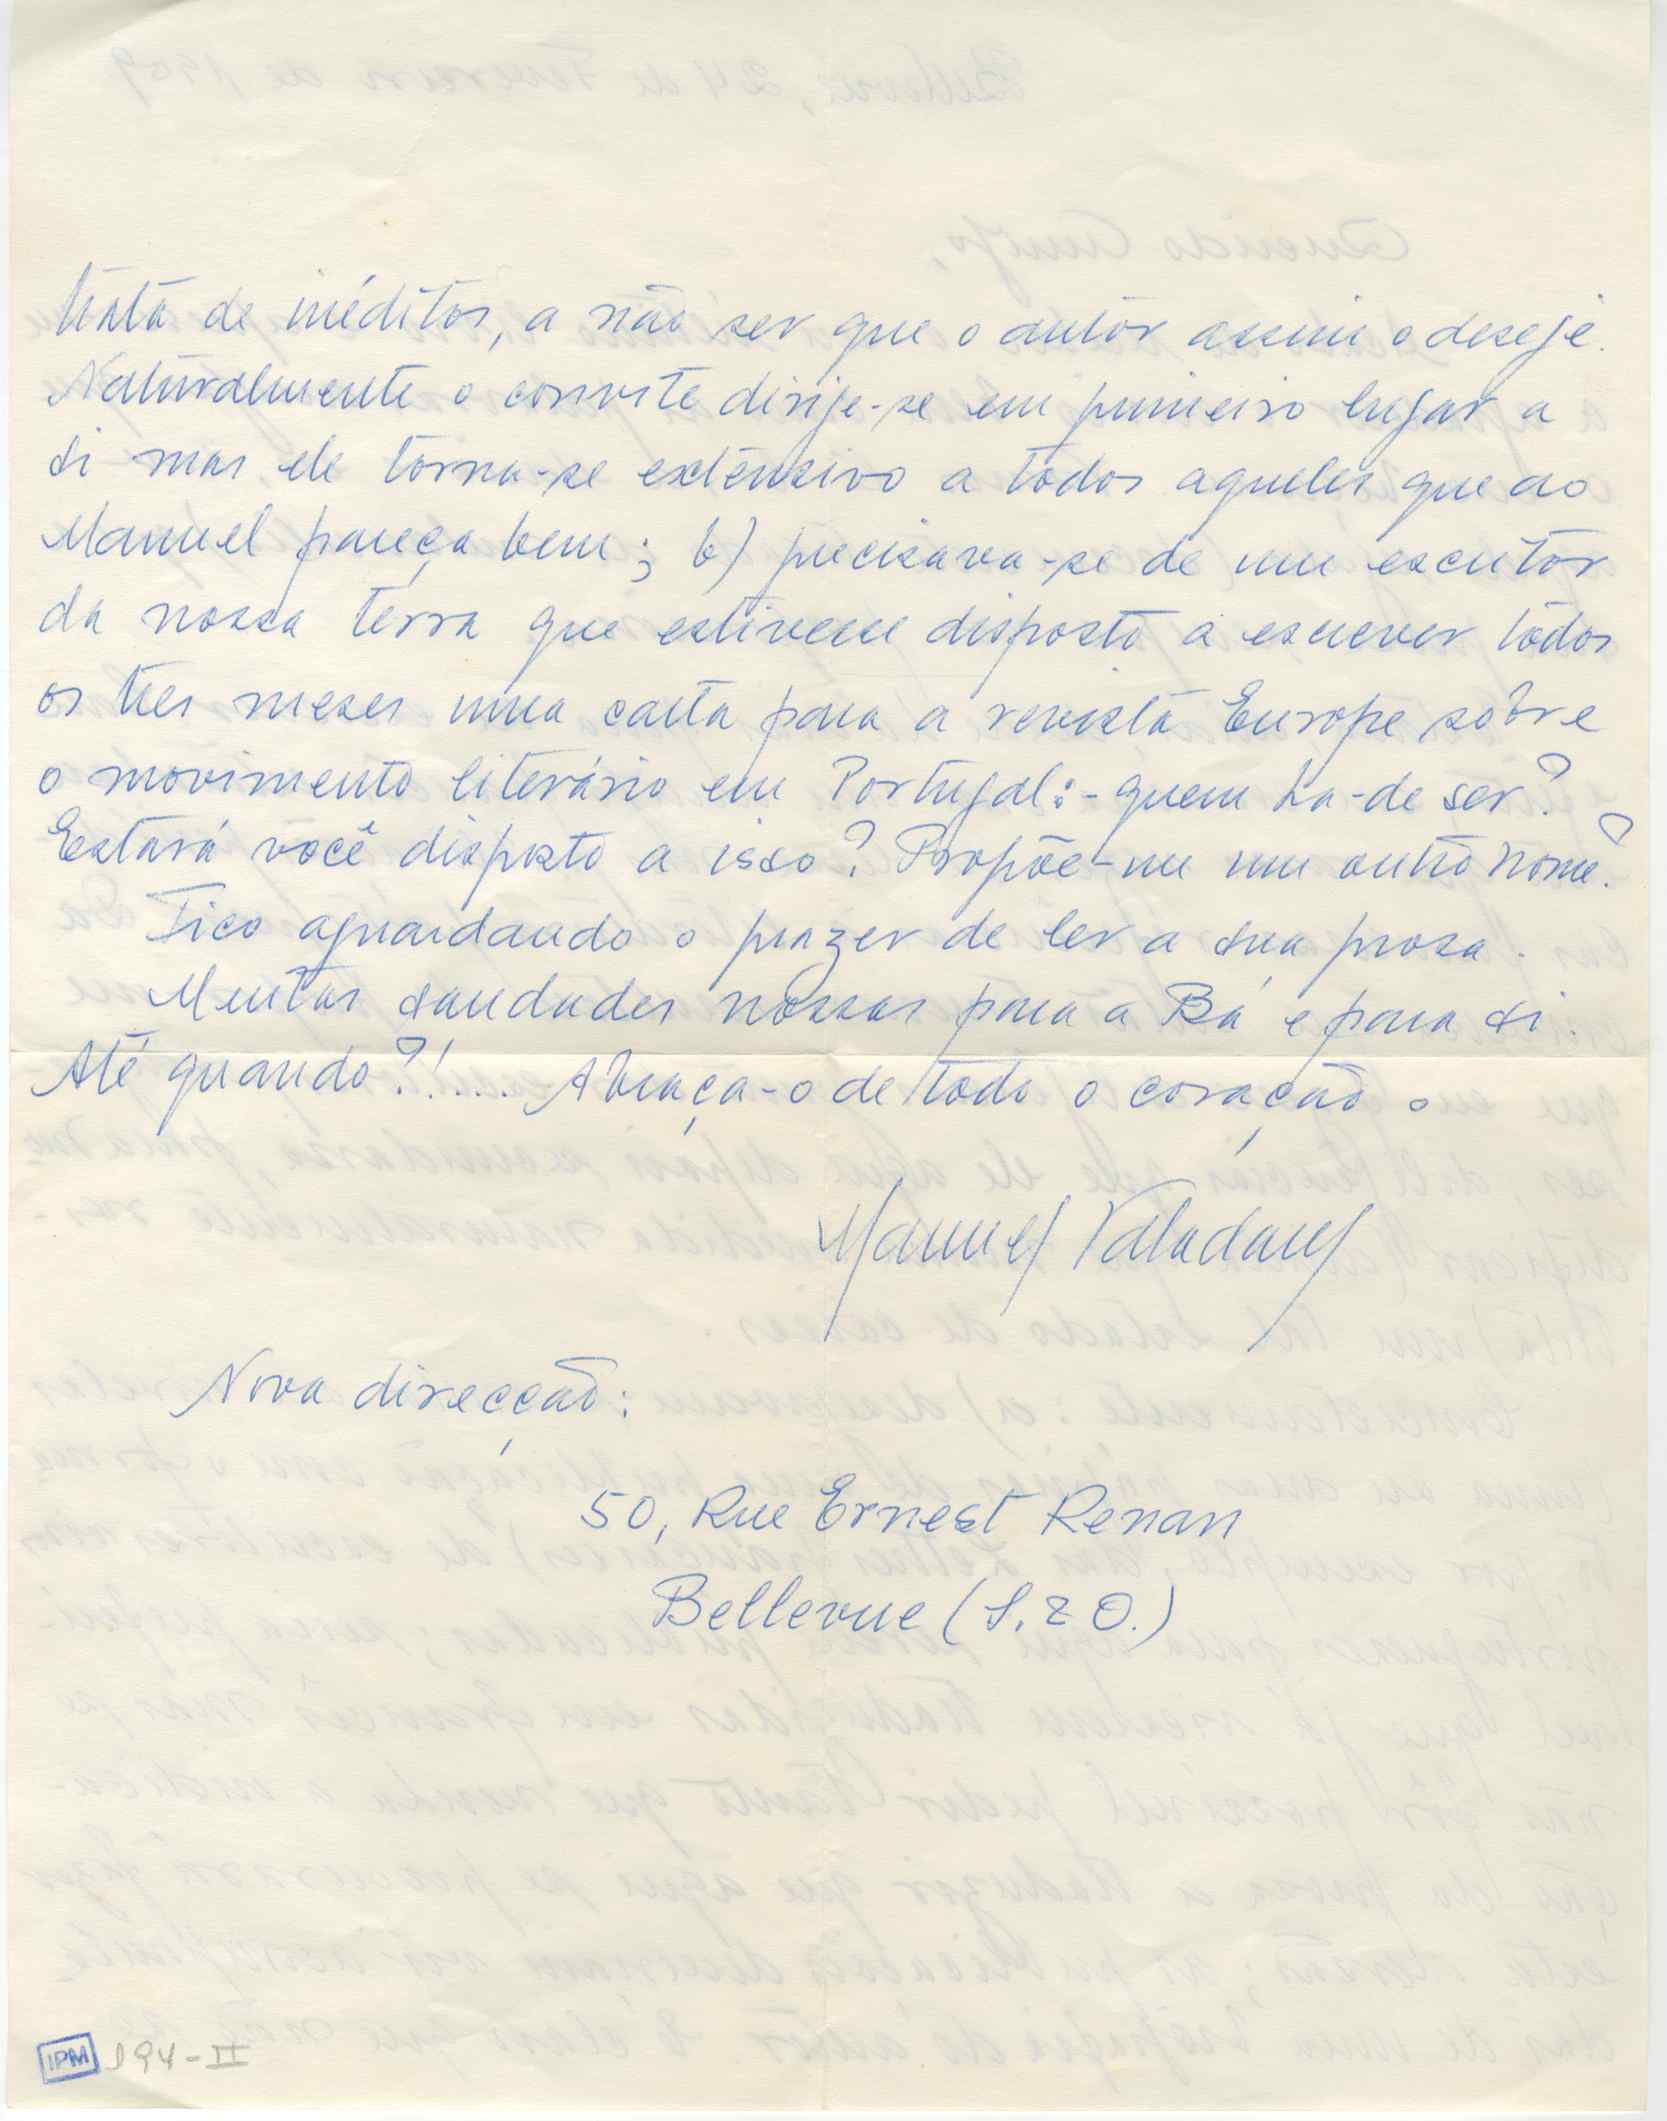 trata de inéditos, a não ser que o autor assim o deseje.
Naturalmente o convite dirije-se em primeiro lugar a
si mas ele torna-se extensivo a todos aqueles que ao
Manuel pareça bem; b) precisava-se de um escritor
da nossa terra que estivesse disposto a escrever todos
os tres meses uma carta para a revista Europe sobre
o movimento literário em Portugal: - quem ha-de ser?
Estará você disposto a isso? Propõe-me um outro nome?
Fico aguardando o prazer de ler a sua prosa.
Muitas saudades nossas para a Bá e para si.
Até quando?!.... Abraça-o de todo o coração o
Manuel Valadares
Nova direcção:
50, Rue Ernest Renan
Bellevue (S. & O.)
IPM 194-II